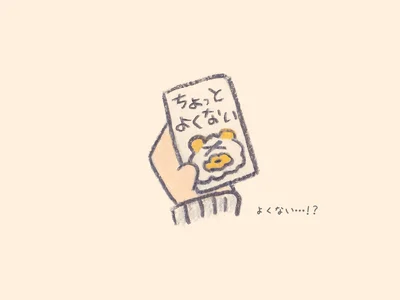 ちょっと
よくない
よくない…!?